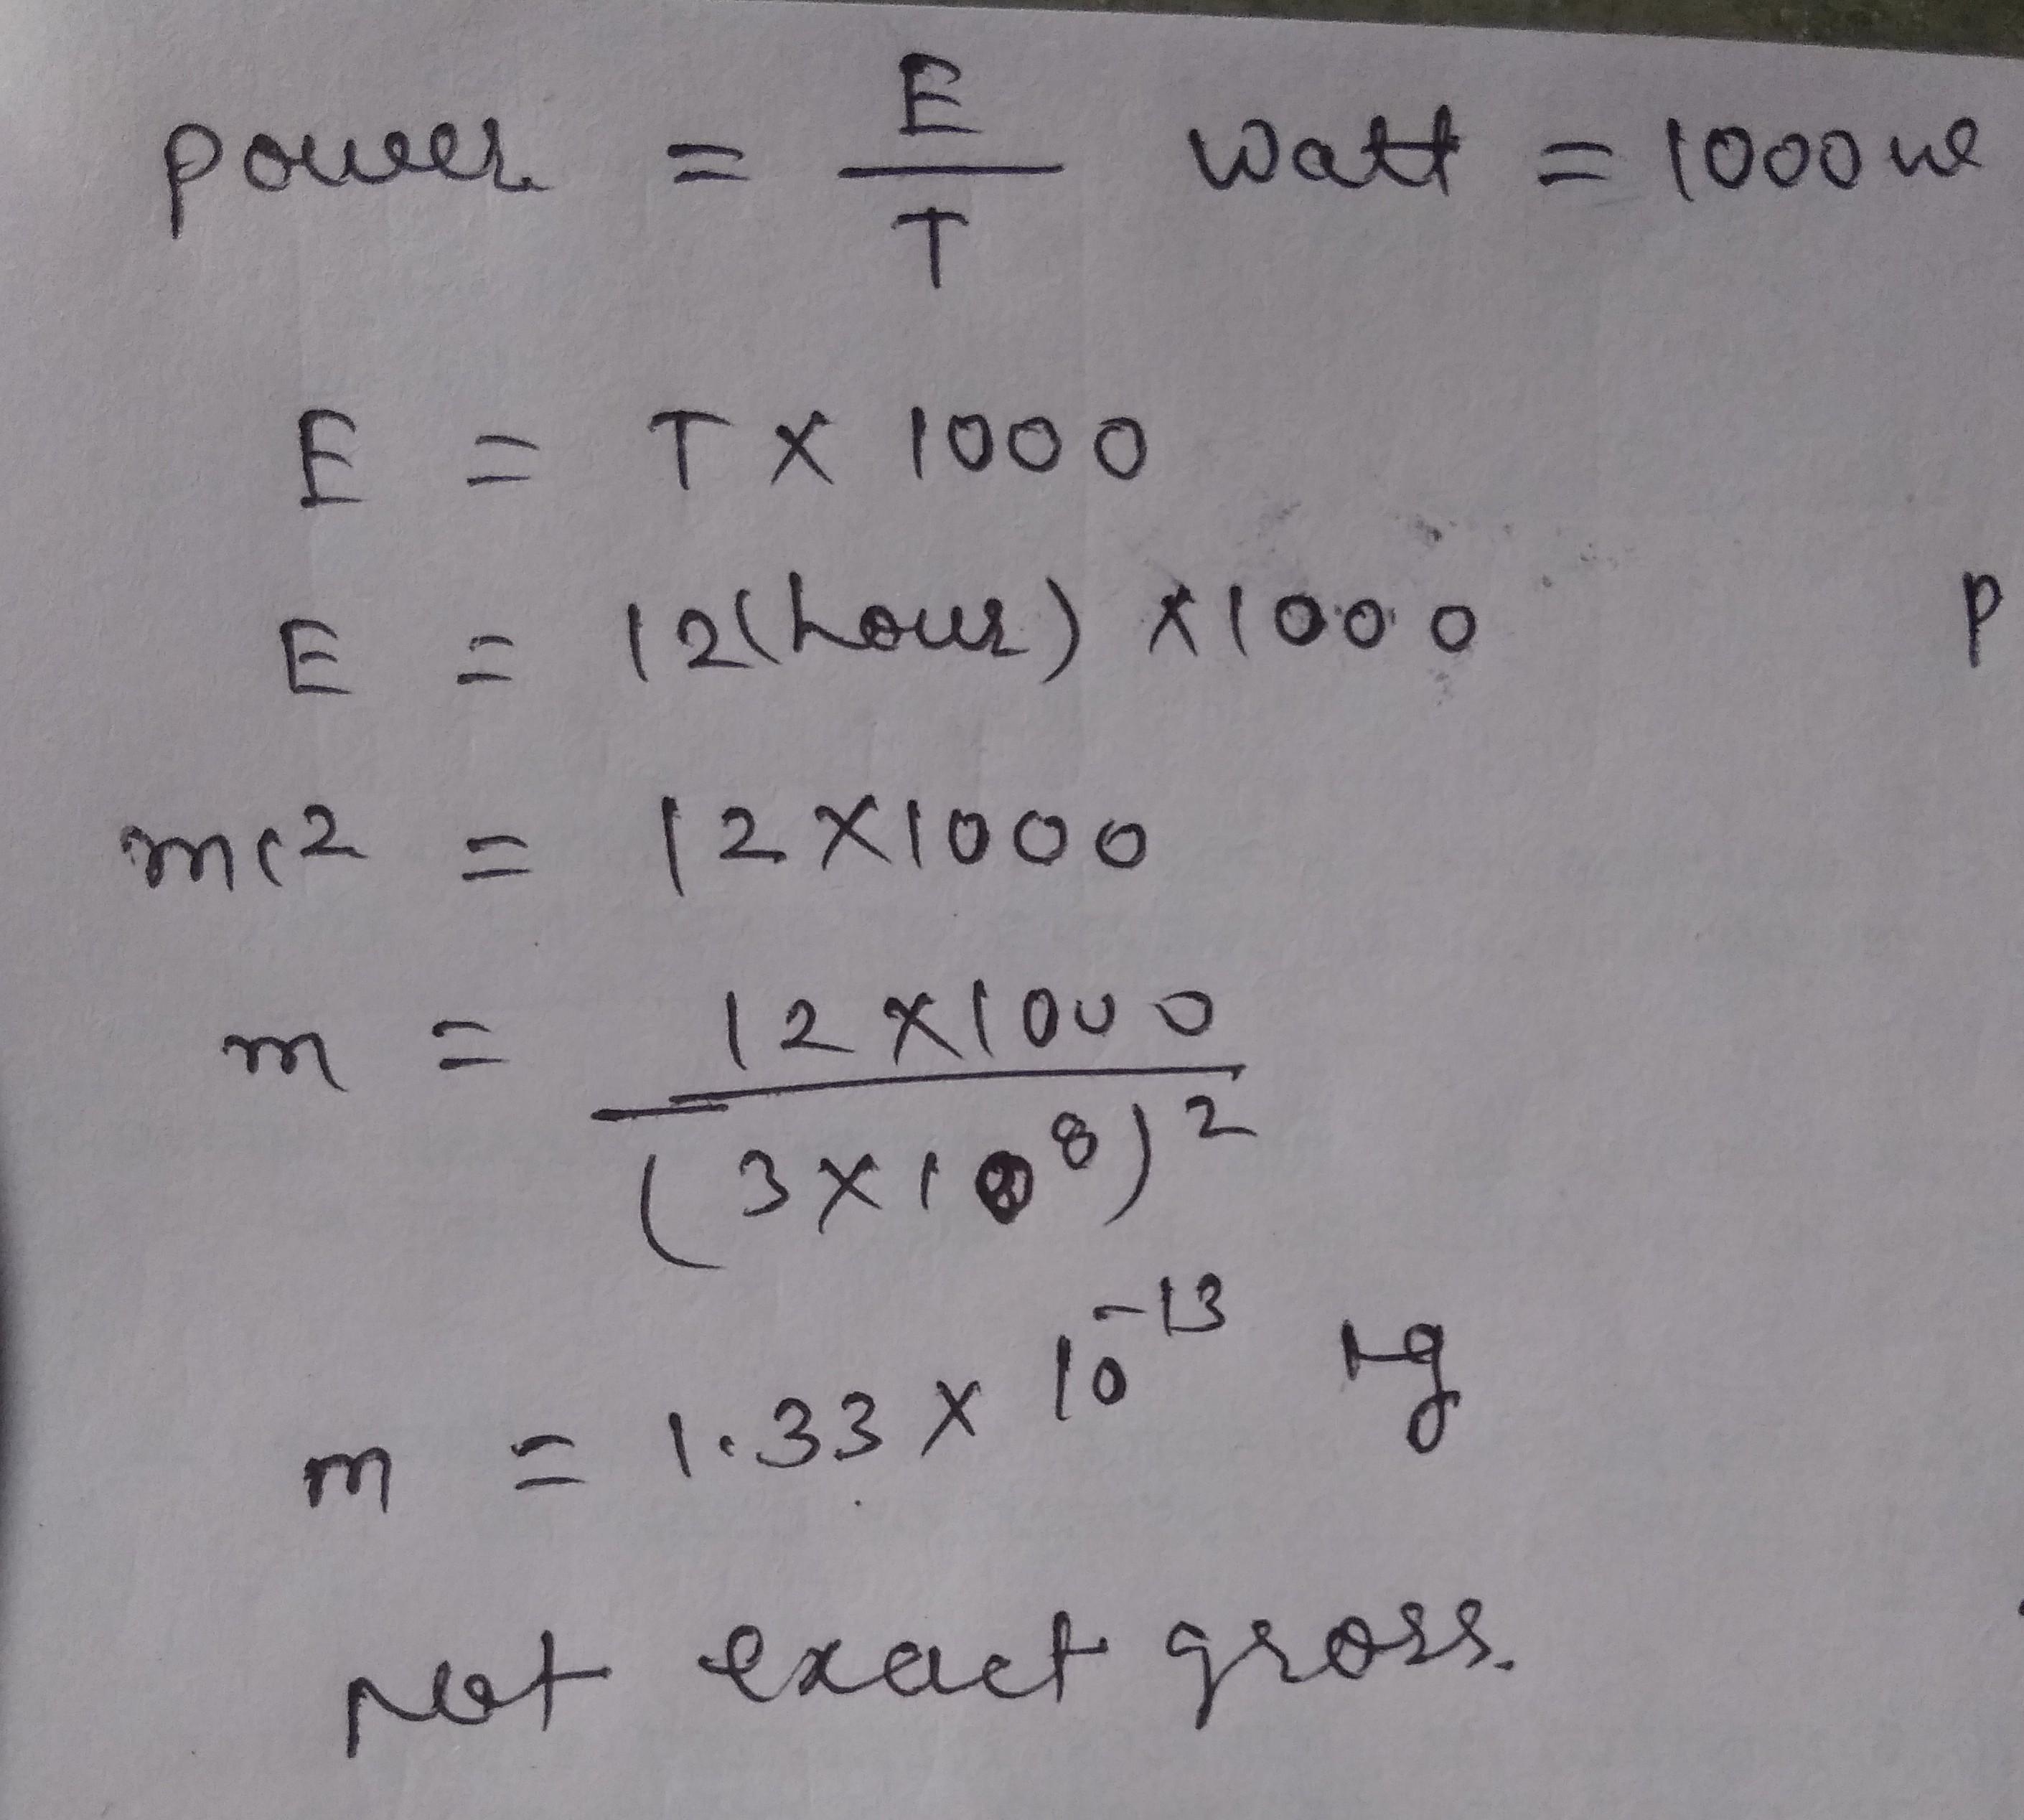 power = E/T Watt = 1000 w
E = T X 1000
E = 12(hour) X 1000 P
mc2 = 12 X 1000
m = 12 X 1000
(3 X 10^8)^2
m = 1.33 X 10^-13 kg
Not exact gross.